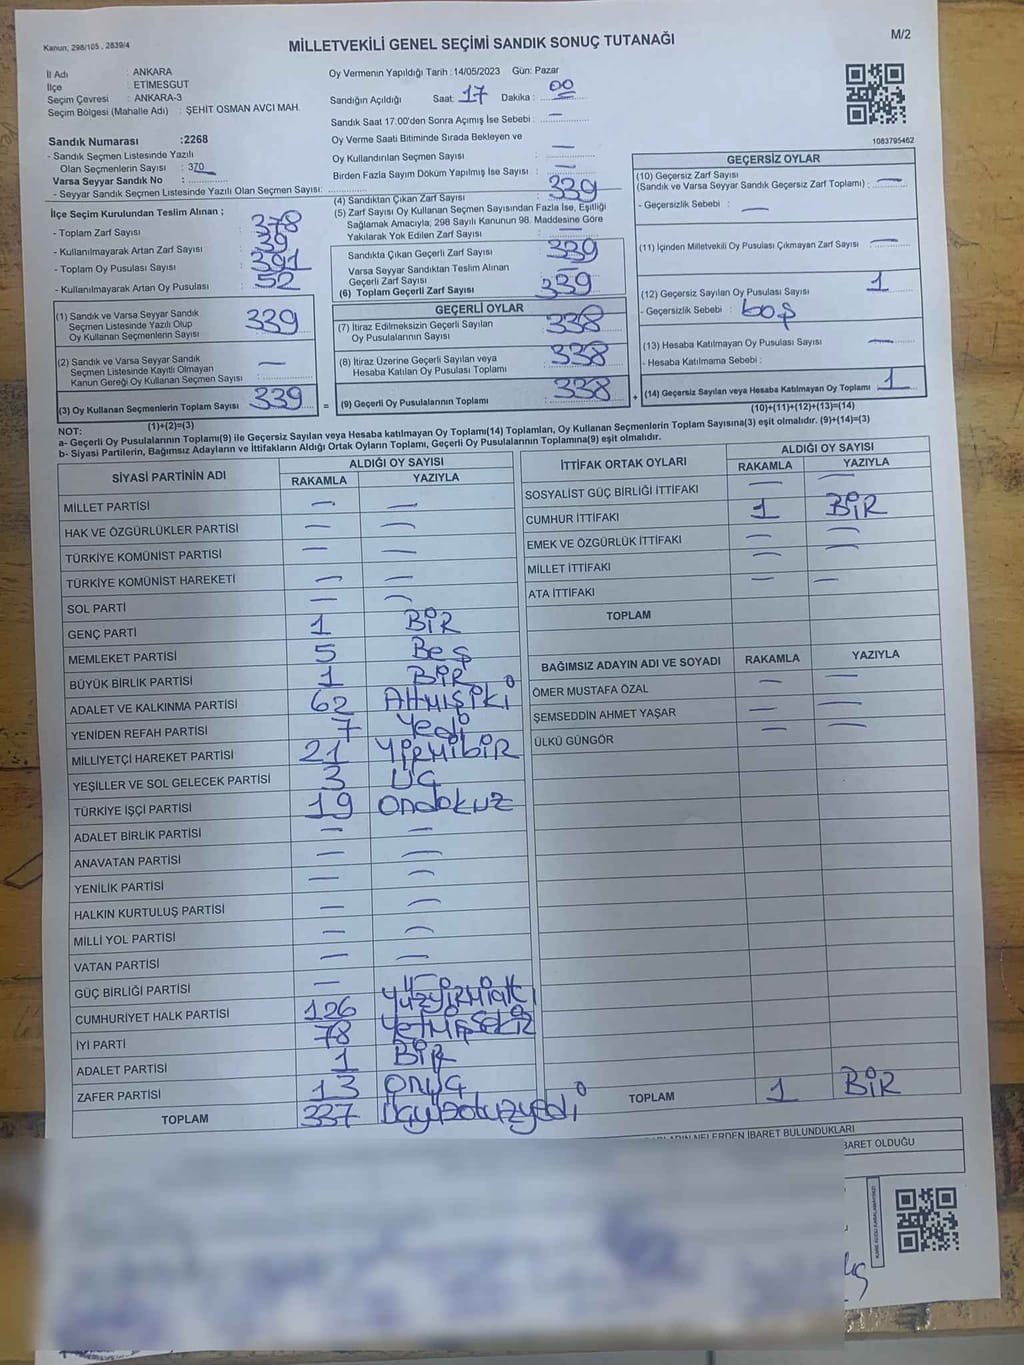 Kanun, 298/105 , 2839/4
MİLLETVEKİLİ GENEL SEÇİMİ SANDIK SONUÇ TUTANAĞI
M/2
İl Adı : ANKARA
İlçe : ETİMESGUT
Seçim Çevresi : ANKARA-3
Seçim Bölgesi (Mahalle Adı) : ŞEHİT OSMAN AVCI MAH.
Oy Vermenin Yapıldığı Tarih :14/05/2023 Gün: Pazar
Sandığın Açıldığı Saat: 17 Dakika : 00
Sandık Saat 17:00'den Sonra Açılmış İse Sebebi : —
Oy Verme Saati Bitiminde Sırada Bekleyen ve
Oy Kullandırılan Seçmen Sayısı : —
Birden Fazla Sayım Döküm Yapılmış İse Sayısı : —
1083795462
Sandık Numarası :2268
- Sandık Seçmen Listesinde Yazılı
Olan Seçmenlerin Sayısı : 370
Varsa Seyyar Sandık No :
- Seyyar Sandık Seçmen Listesinde Yazılı Olan Seçmen Sayısı:
İlçe Seçim Kurulundan Teslim Alınan ;
- Toplam Zarf Sayısı : 378
- Kullanılmayarak Artan Zarf Sayısı : 39
- Toplam Oy Pusulası Sayısı : 391
- Kullanılmayarak Artan Oy Pusulası : 52
(1) Sandık ve Varsa Seyyar Sandık
Seçmen Listesinde Yazılı Olup
Oy Kullanan Seçmenlerin Sayısı 339
(2) Sandık ve Varsa Seyyar Sandık
Seçmen Listesinde Kayıtlı Olmayan
Kanun Gereği Oy Kullanan Seçmen Sayısı : —
(3) Oy Kullanan Seçmenlerin Toplam Sayısı 339
(1)+(2)=(3)
(4) Sandıktan Çıkan Zarf Sayısı : 339
(5) Zarf Sayısı Oy Kullanan Seçmen Sayısından Fazla İse, Eşitliği
Sağlamak Amacıyla; 298 Sayılı Kanunun 98. Maddesine Göre
Yakılarak Yok Edilen Zarf Sayısı : —
Sandıkta Çıkan Geçerli Zarf Sayısı 339
Varsa Seyyar Sandıktan Teslim Alınan
Geçerli Zarf Sayısı : —
(6) Toplam Geçerli Zarf Sayısı 339
GEÇERLİ OYLAR
(7) İtiraz Edilmeksizin Geçerli Sayılan
Oy Pusulalarının Sayısı 338
(8) İtiraz Üzerine Geçerli Sayılan veya
Hesaba Katılan Oy Pusulası Toplamı 338
= (9) Geçerli Oy Pusulalarının Toplamı 338
GEÇERSİZ OYLAR
(10) Geçersiz Zarf Sayısı
(Sandık ve Varsa Seyyar Sandık Geçersiz Zarf Toplamı) : —
- Geçersizlik Sebebi : —
(11) İçinden Milletvekili Oy Pusulası Çıkmayan Zarf Sayısı : —
(12) Geçersiz Sayılan Oy Pusulası Sayısı 1
- Geçersizlik Sebebi : boş
(13) Hesaba Katılmayan Oy Pusulası Sayısı —
- Hesaba Katılmama Sebebi :
+ (14) Geçersiz Sayılan veya Hesaba Katılmayan Oy Toplamı 1
(10)+(11)+(12)+(13)=(14)
NOT:
a- Geçerli Oy Pusulalarının Toplamı(9) ile Geçersiz Sayılan veya Hesaba katılmayan Oy Toplamı(14) Toplamları, Oy Kullanan Seçmenlerin Toplam Sayısına(3) eşit olmalıdır. (9)+(14)=(3)
b- Siyasi Partilerin, Bağımsız Adayların ve İttifakların Aldığı Ortak Oyların Toplamı, Geçerli Oy Pusulalarının Toplamına(9) eşit olmalıdır.
SİYASİ PARTİNİN ADI ALDIĞI OY SAYISI
RAKAMLA YAZIYLA
MİLLET PARTİSİ — —
HAK VE ÖZGÜRLÜKLER PARTİSİ — —
TÜRKİYE KOMÜNİST PARTİSİ — —
TÜRKİYE KOMÜNİST HAREKETİ — —
SOL PARTİ — —
GENÇ PARTİ 1 BİR
MEMLEKET PARTİSİ 5 BEŞ
BÜYÜK BİRLİK PARTİSİ 1 BİR
ADALET VE KALKINMA PARTİSİ 62 ALtMIŞİKİ
YENİDEN REFAH PARTİSİ 7 Yedi
MİLLİYETÇİ HAREKET PARTİSİ 21 YİRMİBİR
YEŞİLLER VE SOL GELECEK PARTİSİ 3 ÜÇ
TÜRKİYE İŞÇİ PARTİSİ 19 ONdokuz
ADALET BİRLİK PARTİSİ — —
ANAVATAN PARTİSİ — —
YENİLİK PARTİSİ — —
HALKIN KURTULUŞ PARTİSİ — —
MİLLİ YOL PARTİSİ — —
VATAN PARTİSİ — —
GÜÇ BİRLİĞİ PARTİSİ — —
CUMHURİYET HALK PARTİSİ 126 yüzyirmialtı
İYİ PARTİ 78 yetmişsekiz
ADALET PARTİSİ 1 BİR
ZAFER PARTİSİ 13 ONüç
TOPLAM 337 üçyüzotuzyedi
İTTİFAK ORTAK OYLARI ALDIĞI OY SAYISI
RAKAMLA YAZIYLA
SOSYALİST GÜÇ BİRLİĞİ İTTİFAKI — —
CUMHUR İTTİFAKI 1 BİR
EMEK VE ÖZGÜRLÜK İTTİFAKI — —
MİLLET İTTİFAKI — —
ATA İTTİFAKI — —
TOPLAM
BAĞIMSIZ ADAYIN ADI VE SOYADI RAKAMLA YAZIYLA
ÖMER MUSTAFA ÖZAL — —
ŞEMSEDDİN AHMET YAŞAR — —
ÜLKÜ GÜNGÖR — —
TOPLAM 1 BİR
NELERDEN İBARET BULUNDUKLARI
İBARET OLDUĞU